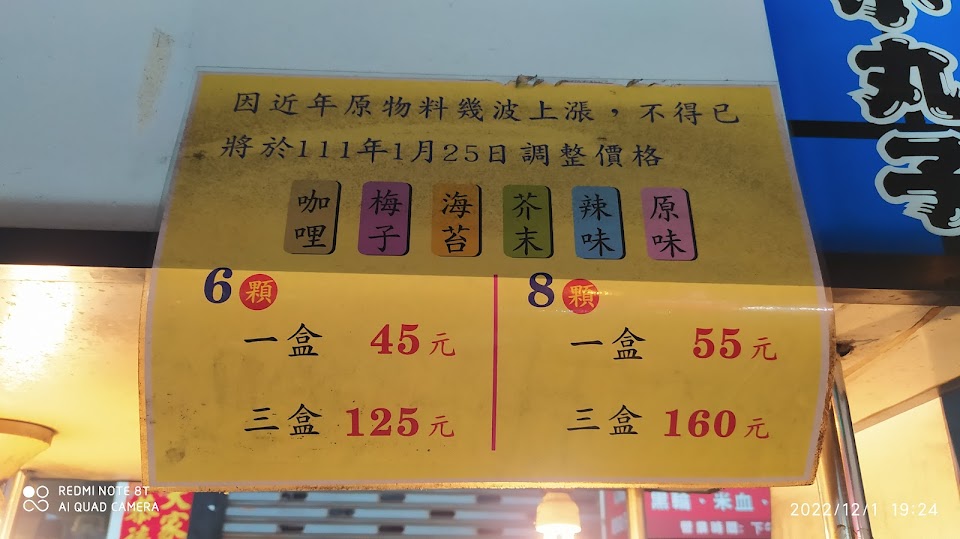 丸子
因近年原物料幾波上漲，不得已
將於111年1月25日調整價格
咖哩 梅子 海苔 芥末 辣味 原味
6顆 8顆
一盒 45元 一盒 55元
三盒 125元 三盒 160元
黑輪、米血、
營業時間: 下午
大家
REDMI NOTE 8T
AI QUAD CAMERA
2022/12/1 19:24